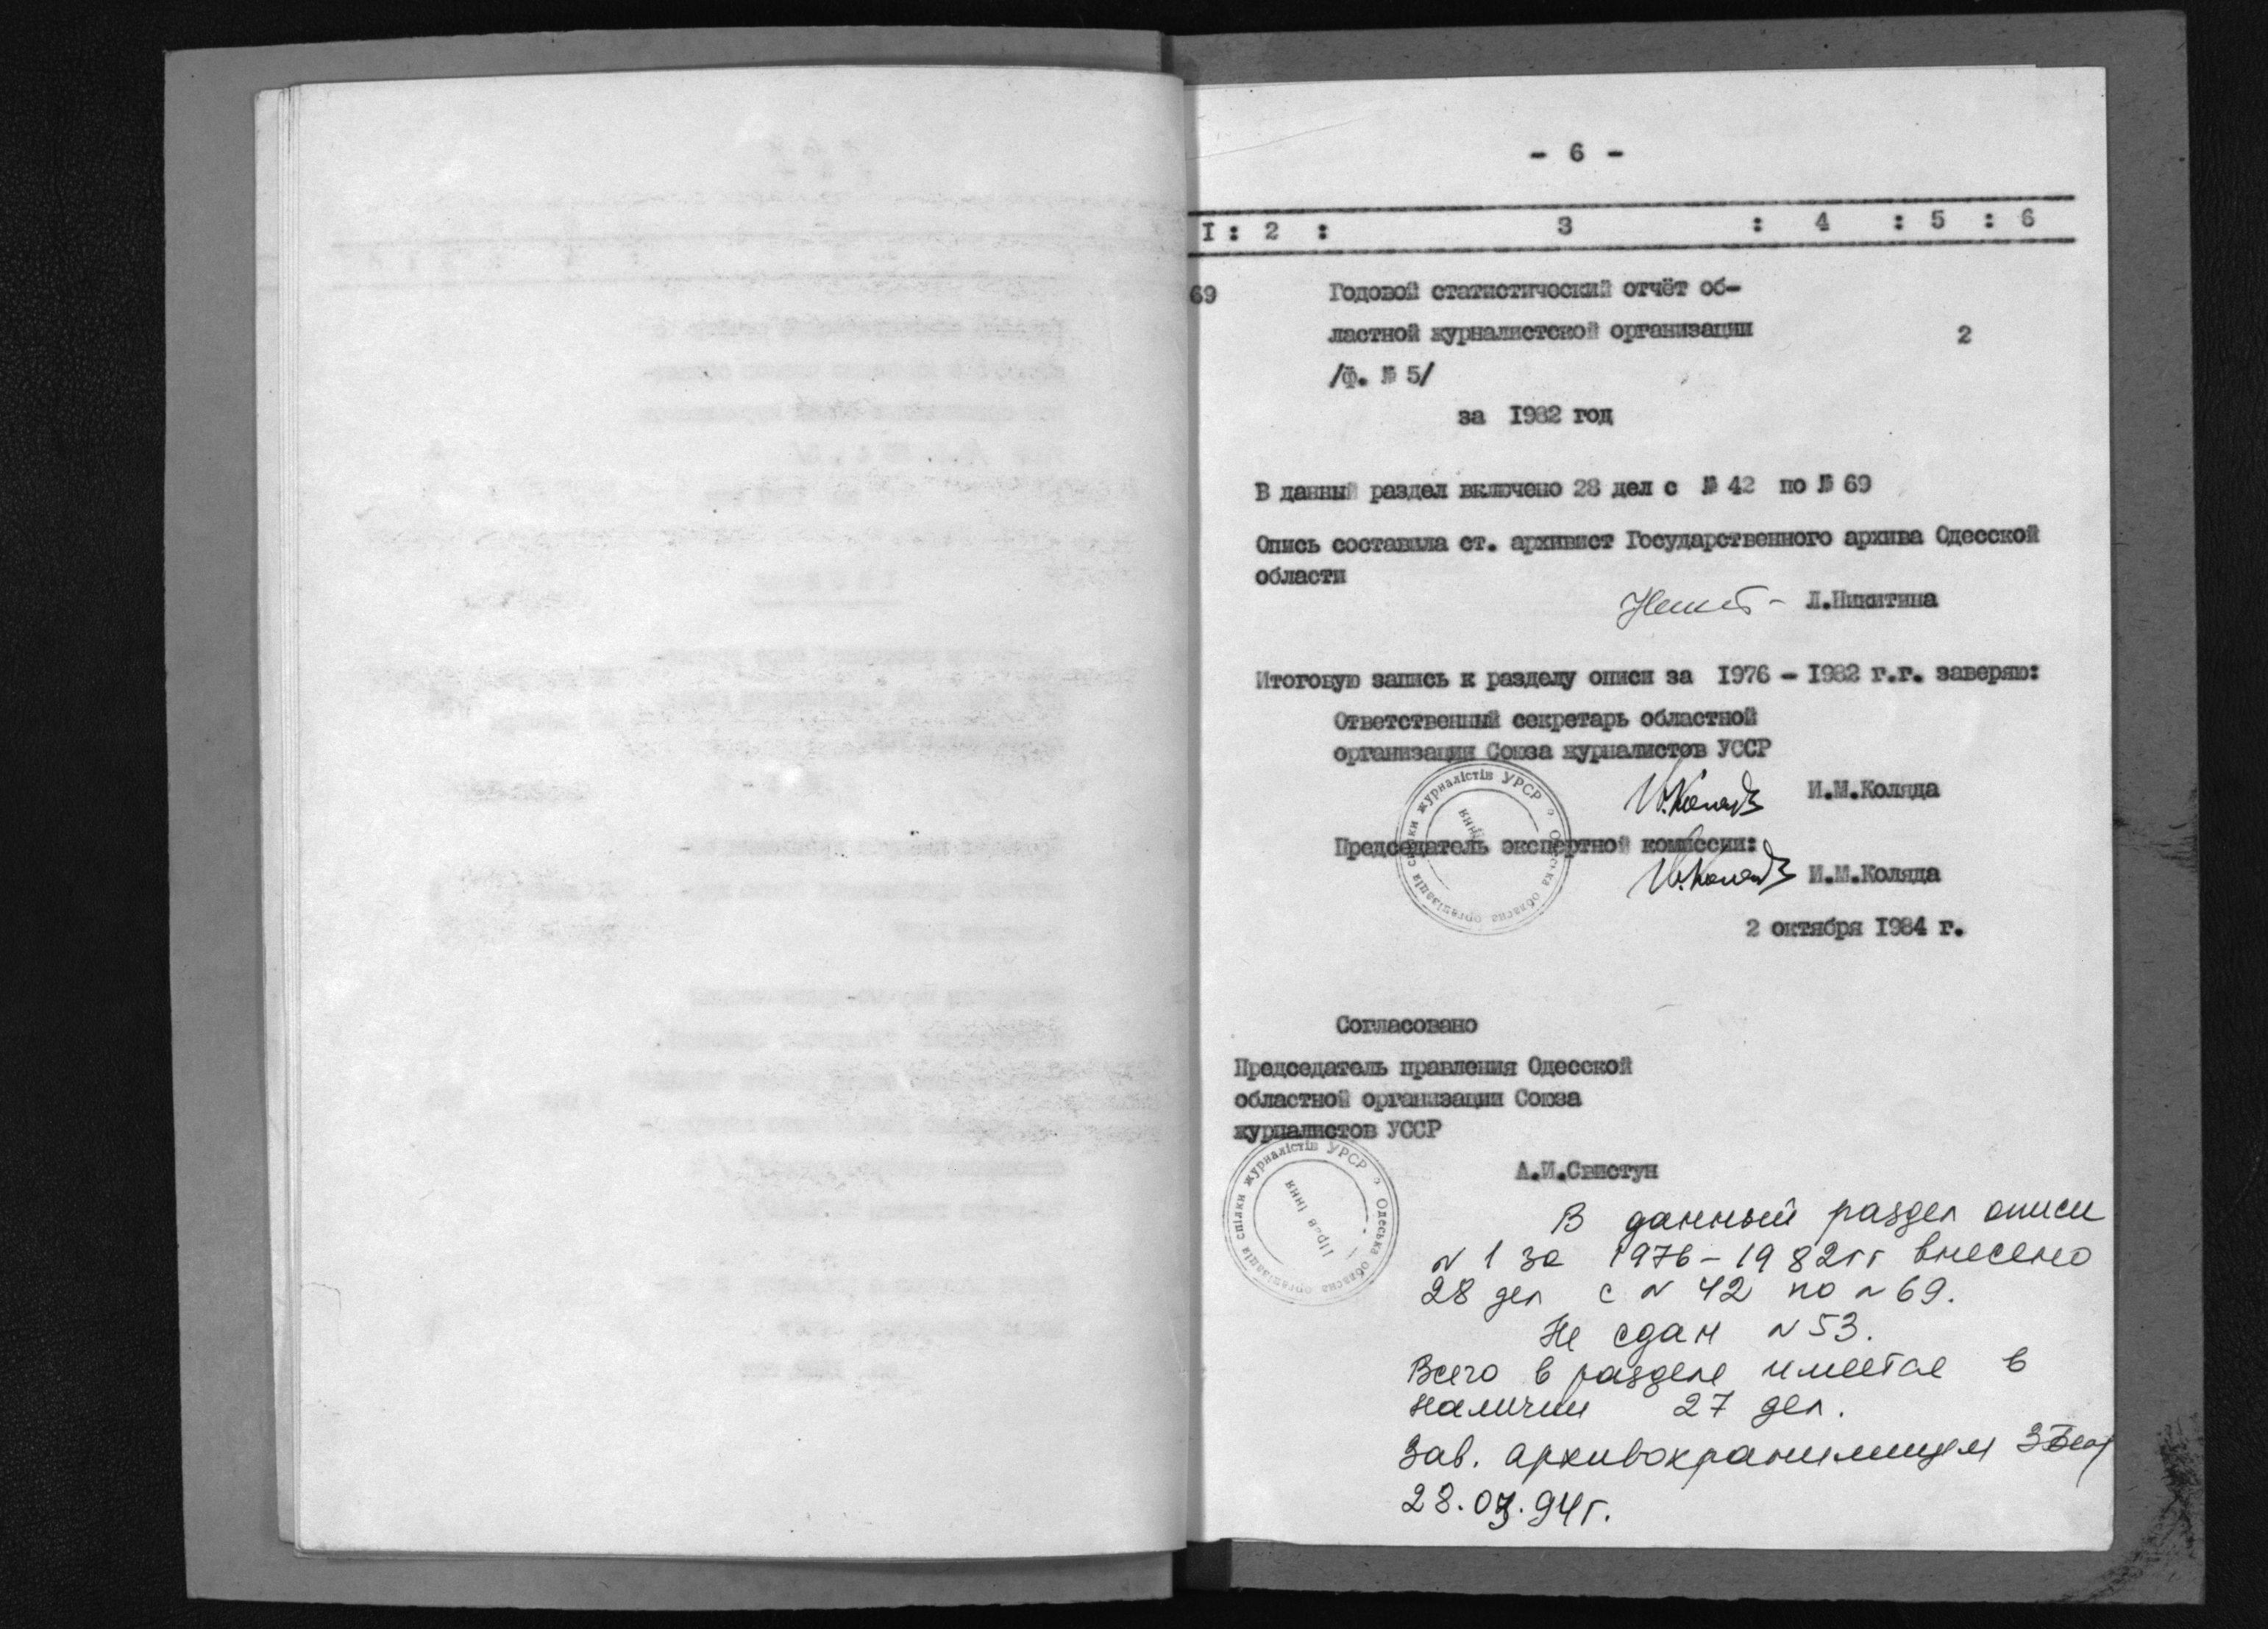 - 6 -
I : 2 : 3 : 4 : 5 : 6
69 Годовой статистический отчёт об-
ластной журналистской организации 2
/ф. № 5/
за 1982 год
В данный раздел включено 28 дел с № 42 по № 69
Опись составила ст. архивист Государственного архива Одесской
области
Л.Никитина
Итоговую запись к разделу описи за 1976 - 1982 г.г. заверяю:
Ответственный секретарь областной
организации Союза журналистов УССР
И.М.Коляда
Председатель экспертной комиссии:
И.М.Коляда
Одеська обласна організація спілки журналістів УРСР
2 октября 1984 г.
Согласовано
Председатель правления Одесской
областной организации Союза
журналистов УССР
А.И.Свистун
Одеська обласна організація спілки журналістів УРСР
В данный раздел описи
№ 1 за 1976-1982гг внесено
28 дел с № 42 по № 69.
Не сдан № 53.
Всего в разделе имеется в
наличии 27 дел.
Зав. архивохранилищем
28.03.94г.